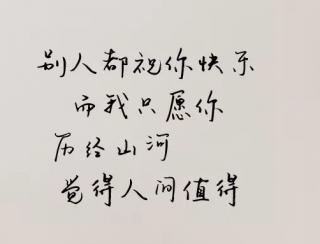 别人都祝你快乐
而我只愿你
历经山河
觉得人间值得